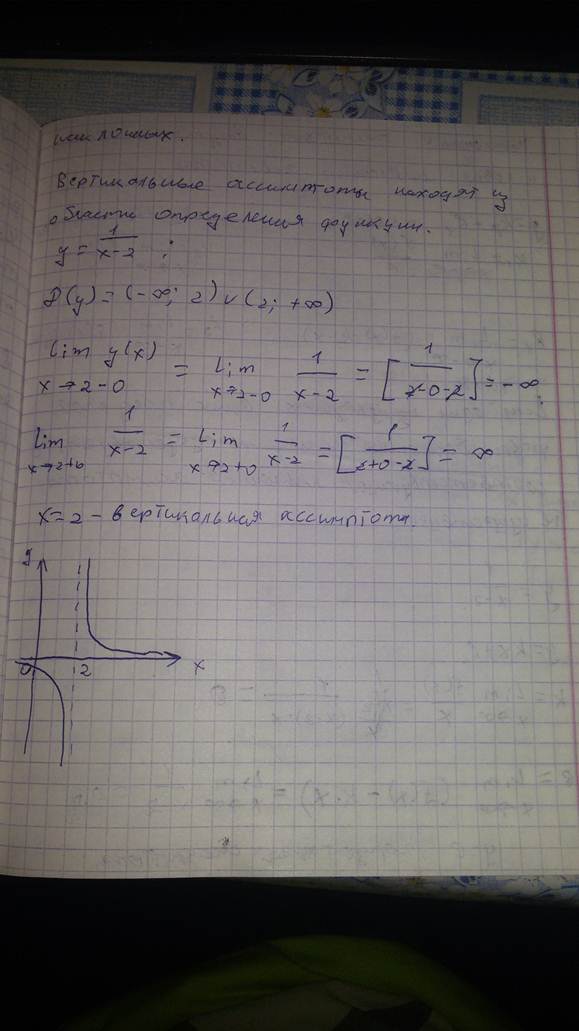 Вертикальные ассимптоты находят из
области определения функции.
y = 1/(x-2) ;
D(y) = (-∞; 2) ∪ (2; +∞)
lim y(x) x→2-0 = lim x→2-0 1/(x-2) = [1/(2-0-2)] = -∞
lim x→2+0 1/(x-2) = lim x→2+0 1/(x-2) = [1/(2+0-2)] = ∞
x=2 - вертикальная ассимптота.
y
0 2 x